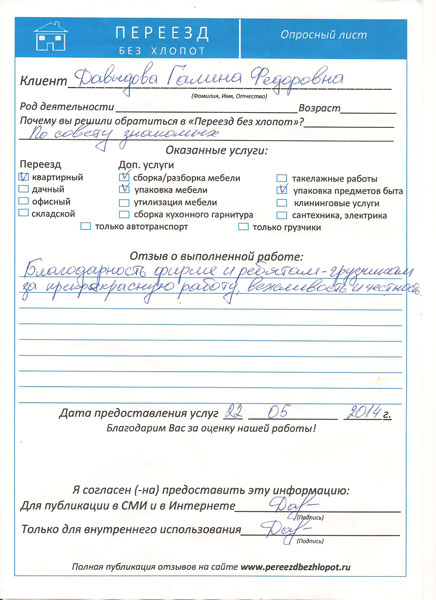 ПЕРЕЕЗД
БЕЗ ХЛОПОТ
Опросный лист
Клиент Давыдова Галина Федоровна
(Фамилия, Имя, Отчество)
Род деятельности Возраст
Почему вы решили обратиться в «Переезд без хлопот»?
По совету знакомых
Оказанные услуги:
Переезд Доп. услуги
квартирный сборка/разборка мебели такелажные работы
дачный упаковка мебели упаковка предметов быта
офисный утилизация мебели клининговые услуги
складской сборка кухонного гарнитура сантехника, электрика
только автотранспорт только грузчики
Отзыв о выполненной работе:
Благодарность фирме и ребятам-грузчикам
за прекрасную работу, вежливость и честность.
Дата предоставления услуг 22 05 2014 г.
Благодарим Вас за оценку нашей работы!
Я согласен (-на) предоставить эту информацию:
Для публикации в СМИ и в Интернете Дав-
(Подпись)
Только для внутреннего использования Дав-
(Подпись)
Полная публикация отзывов на сайте www.pereezdbezhlopot.ru